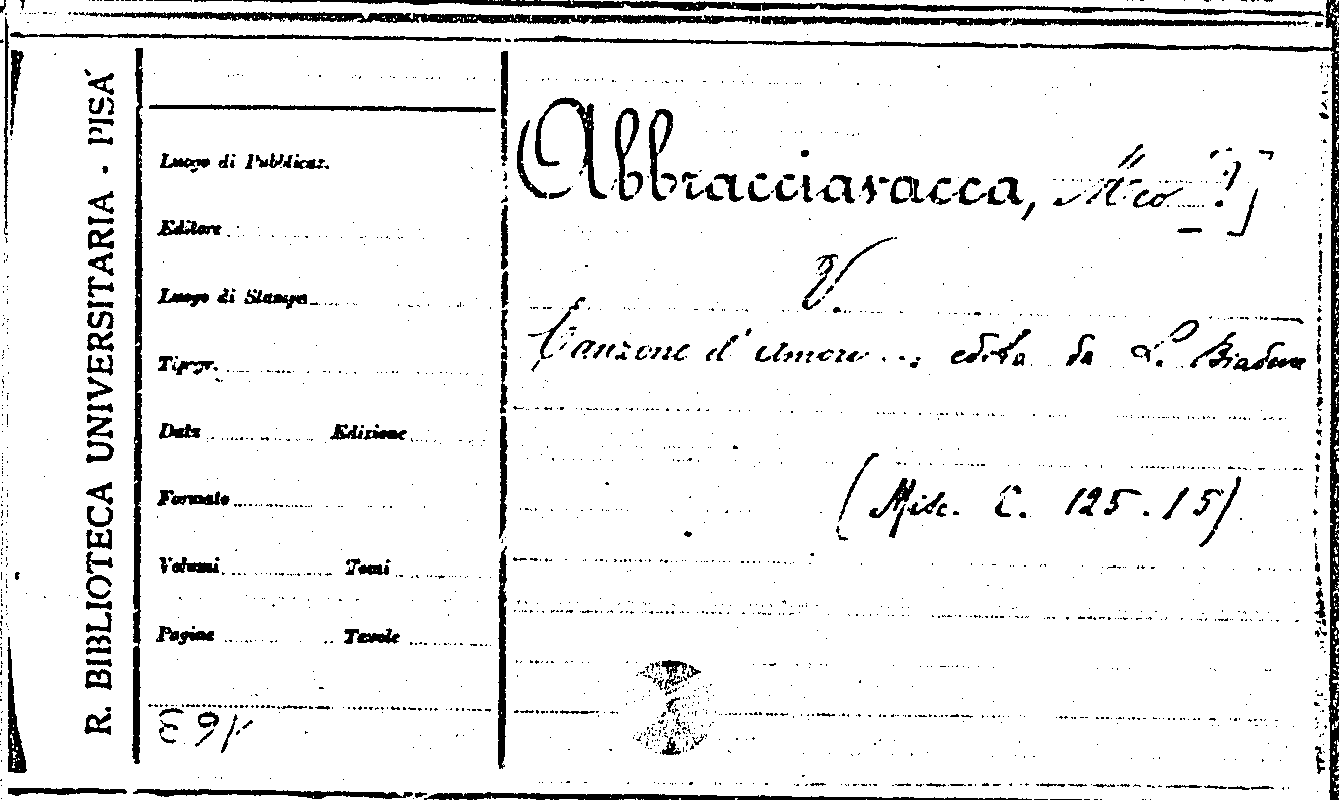 R. BIBLIOTECA UNIVERSITARIA - PISA
Luogo di Pubblicaz.
Editore
Luogo di Stampa
Tipogr.
Data Edizione
Formato
Volumi Tomi
Pagine Tavole
(Abbracciavacca, Meo ?]
V.
Canzone d'amore ... edita da L. Biadene
(Misc. C. 125.15)